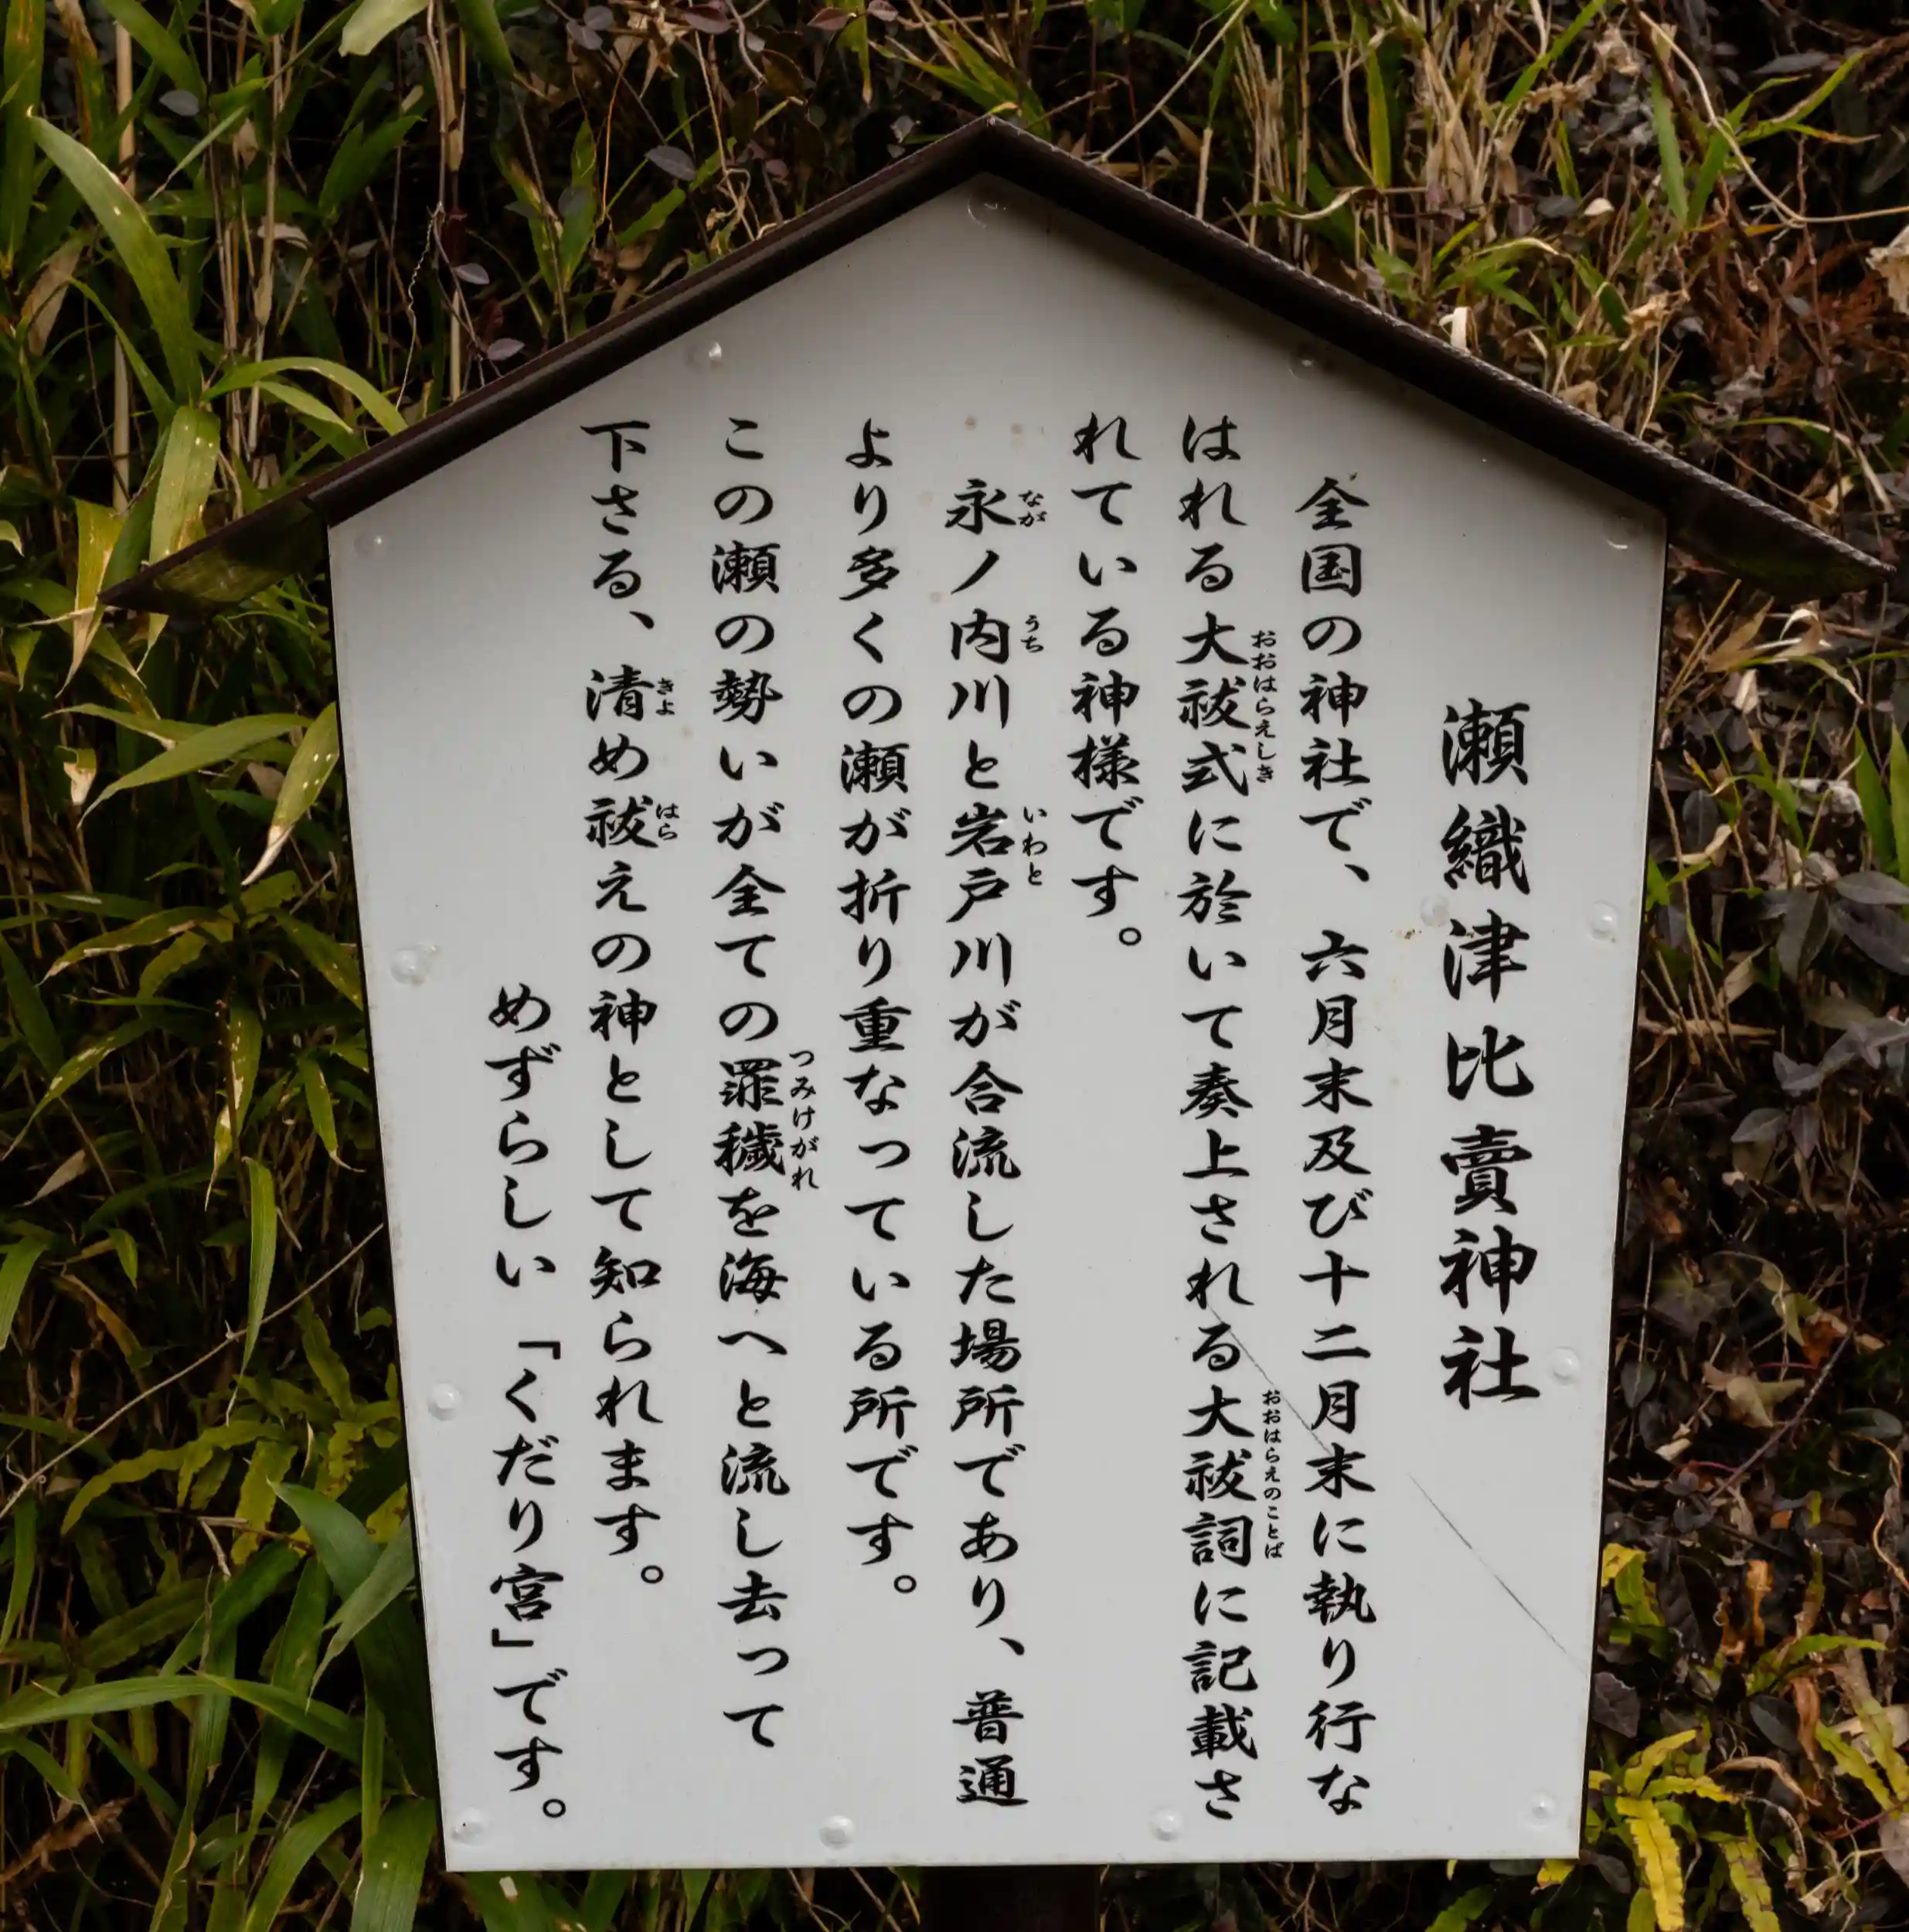 瀬織津比賣神社
全国の神社で、六月末及び十二月末に執り行な
はれる大祓式に於いて奏上される大祓詞に記載さ
おおはらえしき
おおはらえのことば
れている神様です。
永ノ内川と岩戸川が合流した場所であり、普通
なが
うち
いわと
より多くの瀬が折り重なっている所です。
この瀬の勢いが全ての罪穢を海へと流し去って
つみけがれ
下さる、清め祓えの神として知られます。
きよ
はら
めずらしい「くだり宮」です。